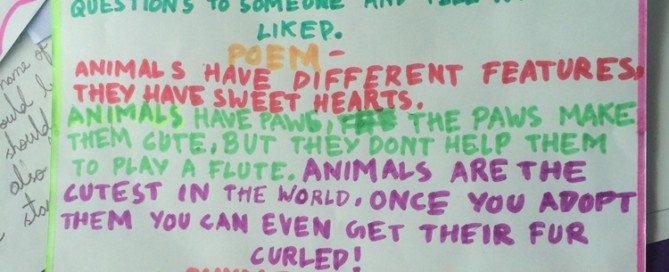 QUESTIONS TO SOMEONE AND
LIKED.
POEM -
ANIMALS HAVE DIFFERENT FEATURES,
THEY HAVE SWEET HEARTS.
ANIMALS HAVE PAWS, THE PAWS MAKE
THEM CUTE, BUT THEY DONT HELP THEM
TO PLAY A FLUTE. ANIMALS ARE THE
CUTEST IN THE WORLD, ONCE YOU ADOPT
THEM YOU CAN EVEN GET THEIR FUR
CURLED!
name of
should
also